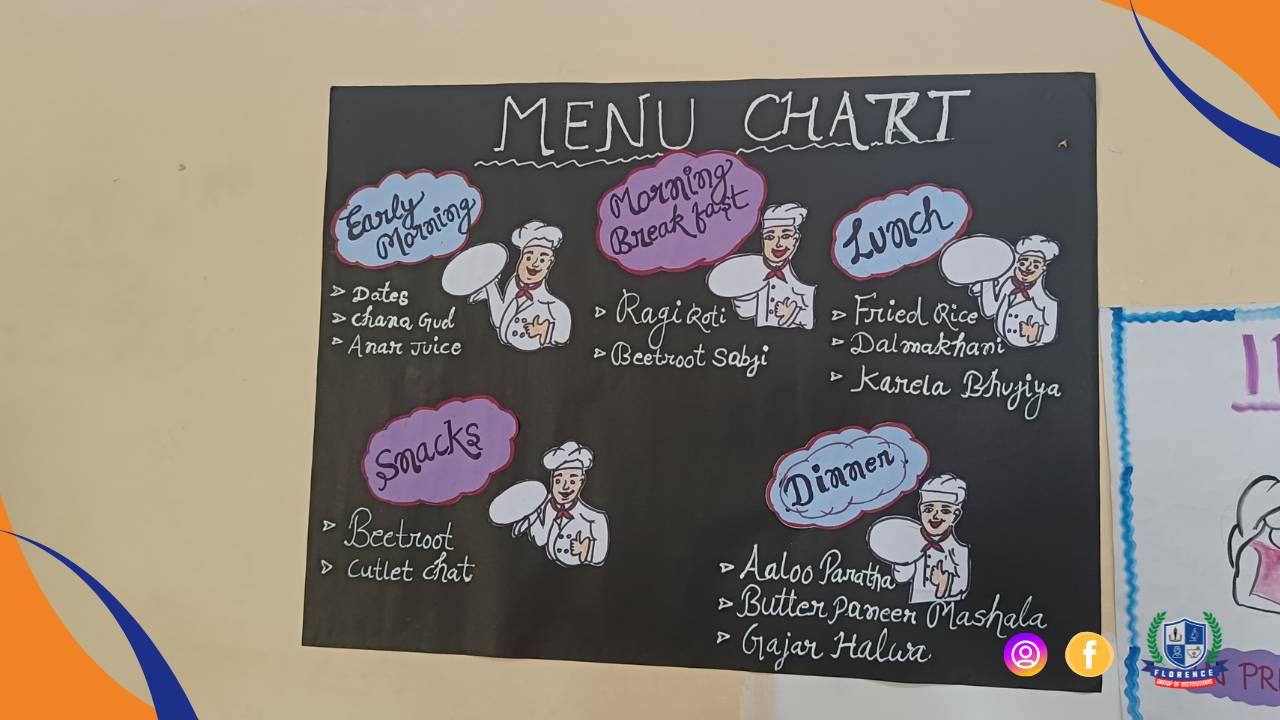 MENU CHART
Early
Morning
Dates
Chana Gud
Anar Juice
Morning
Breakfast
Ragi Roti
Beetroot Sabji
Lunch
Fried Rice
Dalmakhani
Karela Bhujiya
Snacks
Beetroot
Cutlet Chat
Dinner
Aaloo Paratha
Butter Paneer Mashala
Gajar Halwa
FLORENCE
GROUP OF INSTITUTIONS